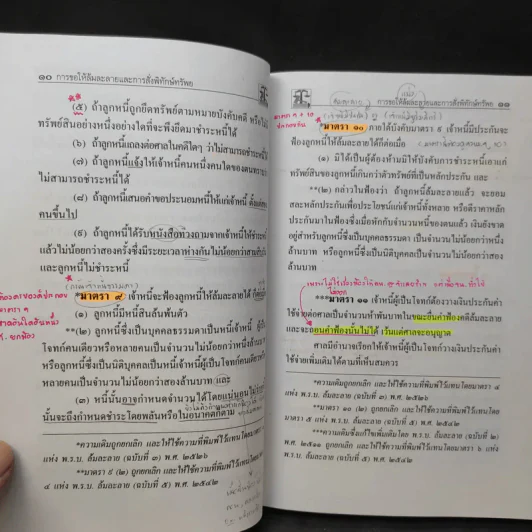 ๑๐ การขอให้ล้มละลายและการสั่งพิทักษ์ทรัพย์
(๕) ถ้าลูกหนี้ถูกยึดทรัพย์ตามหมายบังคับคดี หรือไม่มี
ทรัพย์สินอย่างหนึ่งอย่างใดที่จะพึงยึดมาชำระหนี้ได้
(๖) ถ้าลูกหนี้แถลงต่อศาลในคดีใดๆ ว่าไม่สามารถชำระหนี้
ได้
(๗) ถ้าลูกหนี้แจ้งให้เจ้าหนี้คนหนึ่งคนใดของตนทราบว่า
ไม่สามารถชำระหนี้ได้
(๘) ถ้าลูกหนี้เสนอคำขอประนอมหนี้ให้แก่เจ้าหนี้ ตั้งแต่สอง
คนขึ้นไป
(๙) ถ้าลูกหนี้ได้รับหนังสือทวงถามจากเจ้าหนี้ให้ชำระหนี้
แล้วไม่น้อยกว่าสองครั้งซึ่งมีระยะเวลาห่างกันไม่น้อยกว่าสามสิบวัน
และลูกหนี้ไม่ชำระหนี้
*มาตรา ๙ เจ้าหนี้จะฟ้องลูกหนี้ให้ล้มละลายได้ ก็ต่อเมื่อ
(๑) ลูกหนี้มีหนี้สินล้นพ้นตัว
**(๒) ลูกหนี้ซึ่งเป็นบุคคลธรรมดาเป็นหนี้เจ้าหนี้ ผู้เป็น
โจทก์คนเดียวหรือหลายคนเป็นจำนวนไม่น้อยกว่าหนึ่งล้านบาท
หรือลูกหนี้ซึ่งเป็นนิติบุคคลเป็นหนี้เจ้าหนี้ผู้เป็นโจทก์คนเดียวหรือ
หลายคนเป็นจำนวนไม่น้อยกว่าสองล้านบาท และ
(๓) หนี้นั้นอาจกำหนดจำนวนได้โดยแน่นอน ไม่ว่าหนี้
นั้นจะถึงกำหนดชำระโดยพลันหรือในอนาคตก็ตาม
*ความเดิมถูกยกเลิก และให้ใช้ความที่พิมพ์ไว้แทนโดยมาตรา
๓ แห่ง พ.ร.บ. ล้มละลาย (ฉบับที่ ๓) พ.ศ. ๒๕๒๖
**มาตรา ๙ (๒) ถูกยกเลิก และให้ใช้ความที่พิมพ์ไว้แทนโดยมาตรา
๔ แห่ง พ.ร.บ. ล้มละลาย (ฉบับที่ ๕) พ.ศ. ๒๕๔๒
การขอให้ล้มละลายและการสั่งพิทักษ์ทรัพย์ ๑๑
*มาตรา ๑๐ ภายใต้บังคับมาตรา ๙ เจ้าหนี้มีประกันจะ
ฟ้องลูกหนี้ให้ล้มละลายได้ก็ต่อเมื่อ
(๑) มิได้เป็นผู้ต้องห้ามมิให้บังคับการชำระหนี้เอาแก่
ทรัพย์สินของลูกหนี้เกินกว่าตัวทรัพย์ที่เป็นหลักประกัน และ
**(๒) กล่าวในฟ้องว่า ถ้าลูกหนี้ล้มละลายแล้ว จะยอม
สละหลักประกันเพื่อประโยชน์แก่เจ้าหนี้ทั้งหลาย หรือตีราคาหลัก
ประกันมาในฟ้องซึ่งเมื่อหักกับจำนวนหนี้ของตนแล้ว เงินยังขาด
อยู่สำหรับลูกหนี้ซึ่งเป็นบุคคลธรรมดา เป็นจำนวนไม่น้อยกว่าหนึ่ง
ล้านบาท หรือลูกหนี้ซึ่งเป็นนิติบุคคลเป็นจำนวนไม่น้อยกว่าสอง
ล้านบาท
***มาตรา ๑๑ เจ้าหนี้ผู้เป็นโจทก์ต้องวางเงินประกันค่า
ใช้จ่ายต่อศาลเป็นจำนวนห้าพันบาทในขณะยื่นคำฟ้องคดีล้มละลาย
และจะถอนคำฟ้องนั้นไม่ได้ เว้นแต่ศาลจะอนุญาต
ศาลมีอำนาจเรียกให้เจ้าหนี้ผู้เป็นโจทก์วางเงินประกันค่า
ใช้จ่ายเพิ่มเติมได้ตามที่เห็นสมควร
*ความเดิมถูกยกเลิก และให้ใช้ความที่พิมพ์ไว้แทนโดยมาตรา ๔
แห่ง พ.ร.บ. ล้มละลาย (ฉบับที่ ๓) พ.ศ. ๒๕๒๖
**มาตรา ๑๐ (๒) ถูกยกเลิก และให้ใช้ความที่พิมพ์ไว้แทนโดย
มาตรา ๕ แห่ง พ.ร.บ. ล้มละลาย (ฉบับที่ ๕) พ.ศ. ๒๕๔๒
***ความเดิมซึ่งแก้ไขเพิ่มเติมโดย พ.ร.บ. ล้มละลาย (ฉบับที่ ๒)
พ.ศ. ๒๕๑๑ ถูกยกเลิก และให้ใช้ความที่พิมพ์ไว้แทนโดยมาตรา ๖ แห่ง
พ.ร.บ. ล้มละลาย (ฉบับที่ ๕) พ.ศ. ๒๕๔๒